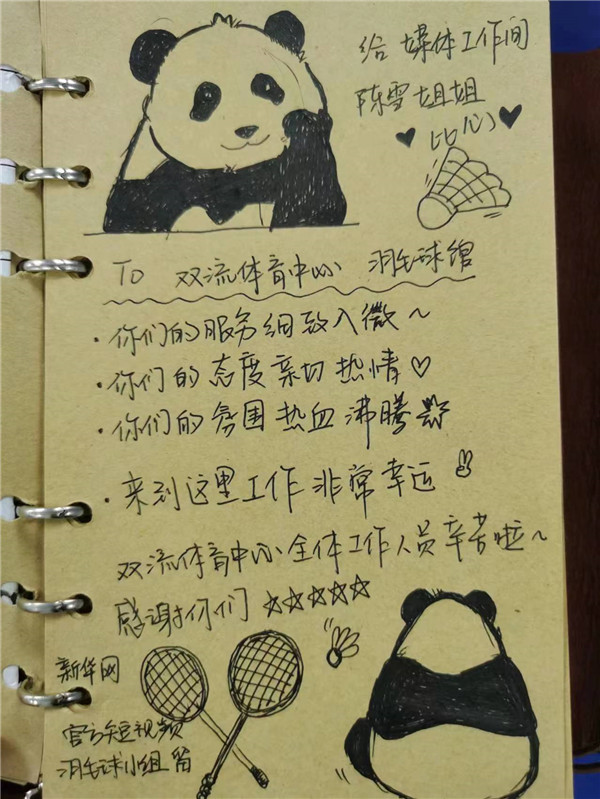 给 媒体工作间
陈雪姐姐
比心
To 双流体育中心 羽毛球馆
·你们的服务细致入微~
·你们的态度亲切热情♡
·你们的氛围热血沸腾
·来到这里工作非常幸运
双流体育中心全体工作人员辛苦啦~
感谢你们 ☆☆☆☆☆
新华网
官方短视频
羽毛球小组 留